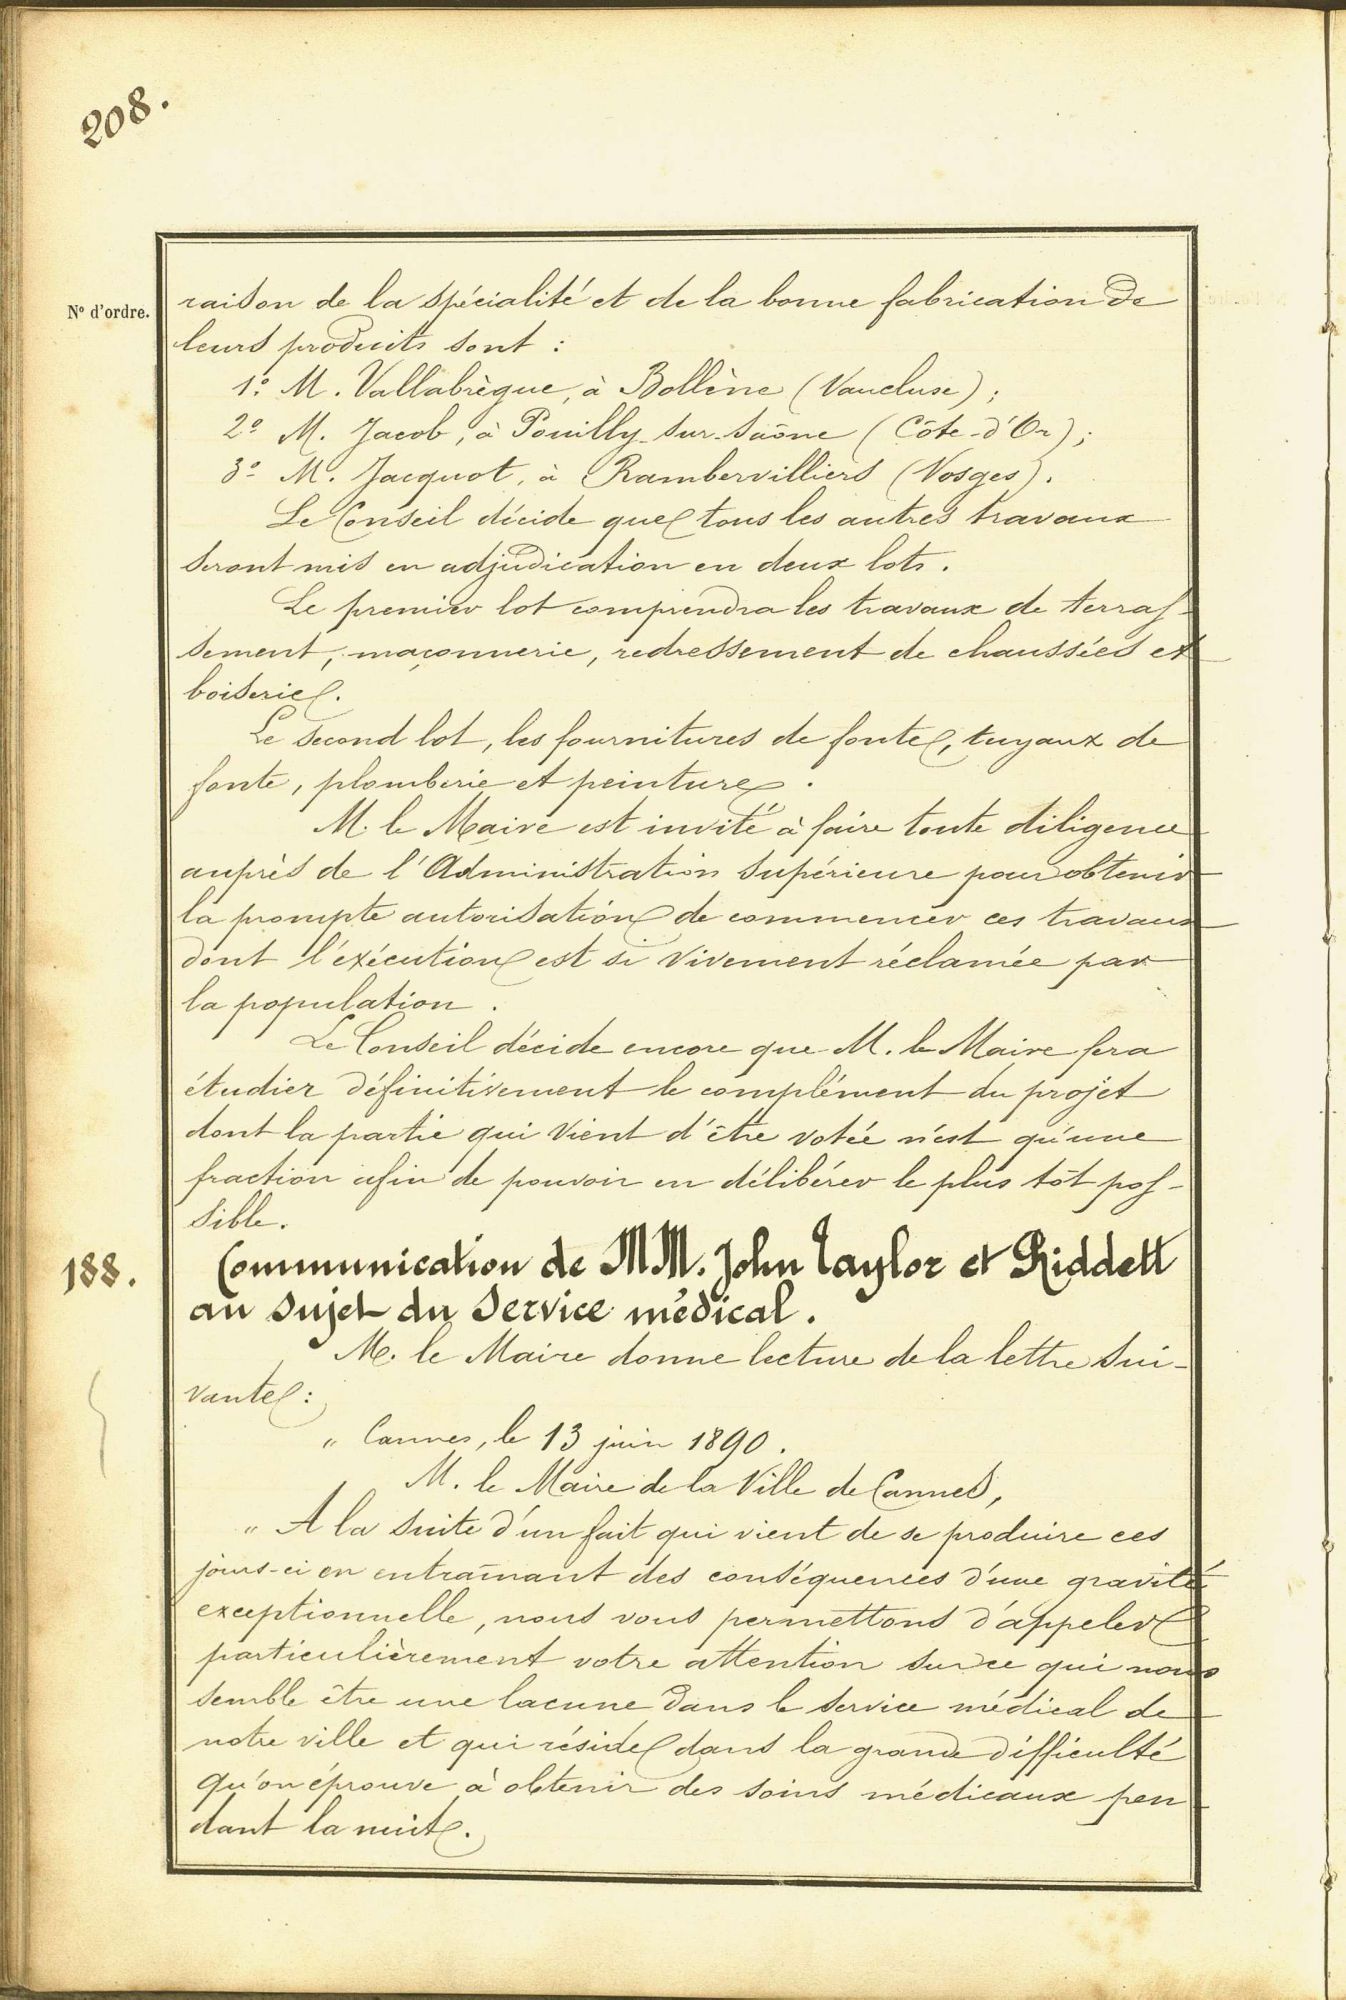 208.
N° d'ordre.
raison de la spécialité et de la bonne fabrication de
leurs produits sont :
1° M. Vallabrègue, à Bollène (Vaucluse) ;
2° M. Jacob, à Pouilly-sur-Saône (Côte-d'Or) ;
3° M. Jacquot, à Rambervilliers (Vosges).
Le Conseil décide que tous les autres travaux
seront mis en adjudication en deux lots.
Le premier lot comprendra les travaux de terras-
sement, maçonnerie, redressement de chaussées et
boiserie.
Le second lot, les fournitures de fonte, tuyaux de
fonte, plomberie et peinture.
M. le Maire est invité à faire toute diligence
auprès de l'Administration supérieure pour obtenir
la prompte autorisation de commencer ces travaux
dont l'exécution est si vivement réclamée par
la population.
Le Conseil décide encore que M. le Maire fera
étudier définitivement le complément du projet
dont la partie qui vient d'être votée n'est qu'une
fraction afin de pouvoir en délibérer le plus tôt pos-
sible.
188.
Communication de MM. John Taylor et Riddett
au sujet du Service médical.
M. le Maire donne lecture de la lettre sui-
vante :
" Cannes, le 13 juin 1890.
M. le Maire de la Ville de Cannes,
" A la suite d'un fait qui vient de se produire ces
jours-ci en entraînant des conséquences d'une gravité
exceptionnelle, nous vous permettons d'appeler
particulièrement votre attention sur ce qui nous
semble être une lacune dans le service médical de
notre ville et qui réside dans la grande difficulté
qu'on éprouve à obtenir des soins médicaux pen-
dant la nuit.